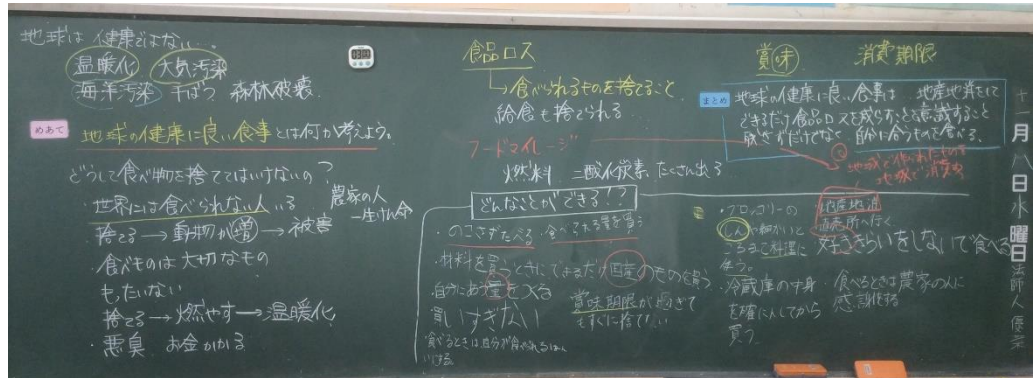 地球は健康ではない…
温暖化 大気汚染
海洋汚染 干ばつ 森林破壊
めあて
地球の健康に良い食事とは何か考えよう。
どうして食べ物を捨ててはいけないの?
・世界には食べられない人いる
農家の人
一生けん命
捨てる→動物が増→被害
・食べものは大切なもの
もったいない
捨てる→燃やす→温暖化
・悪臭 お金かかる
食品ロス
食べられるものを捨てること
給食も捨てられる
フードマイレージ
燃料 二酸化炭素 たくさん出る
どんなことができる!?
・のこさずたべる ・食べきれる量を買う
・材料を買うときにできるだけ国産のものを買う
・自分にあう量をつくる
買いすぎない
賞味期限が過ぎて
もすぐに捨てない
賞味 消費期限
まとめ
地球の健康に良い食事は 地産地消をして
できるだけ食品ロスを減らすことを意識すること
自分に合うものを食べる。
地域で作られたものを
地域で消費
・ブロッコリーの
しんを細かいと
使う。
・冷蔵庫の中身
を確にんしてから
買う
地産地消
直売所へ行く。
好ききらいをしないで食べる
・食べるときは農家の人に
感謝する
十一月八日水曜日